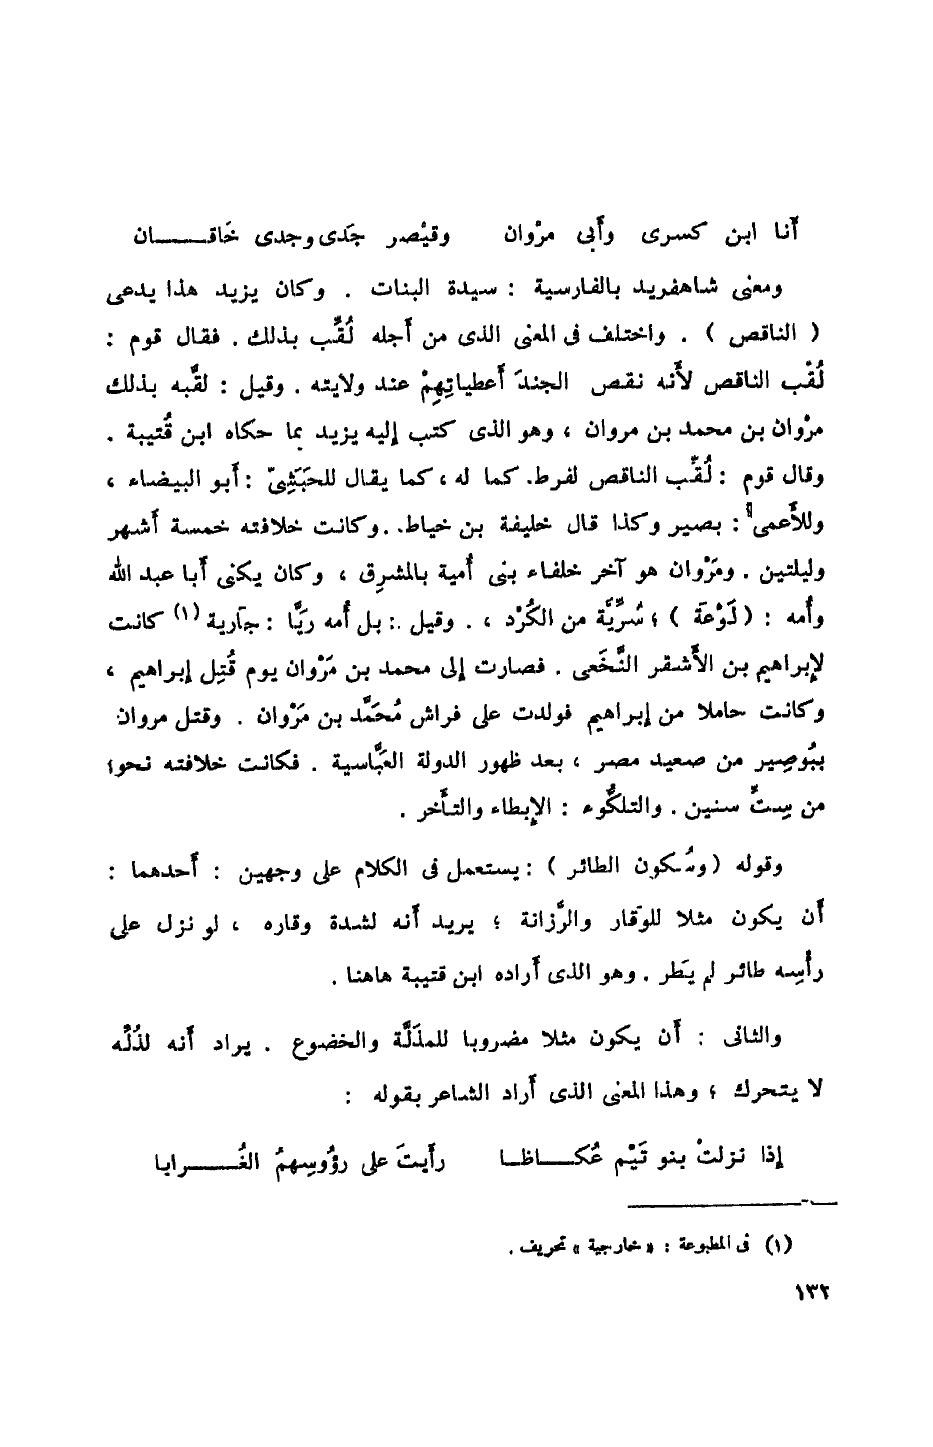 أنا ابن كسرى وأبى مرْوان وقيْصر جَدى وجدى خَاقــــان
ومعنى شاهفريد بالفارسية : سيدة البنات . وكان يزيد هذا يدعى
( الناقص ) . واختلف فى المعنى الذى من أجله لُقِّب بذلك . فقال قوم :
لُقّب الناقص لأَنه نقص الجندَ أعطياتِهِمْ عند ولايته . وقيل : لقَّبه بذلك
مرْوان بن محمد بن مروان ، وهو الذى كتب إليه يزيد بما حكاه ابن قُتيبة .
وقال قوم : لُقِّب الناقص لفرط. كما له ، كما يقال للحَبَثِىّ : أبو البيضاء ،
وللأَعمى : بصير وكذا قال خليفة بن خياط. .وكانت خلافته خمسة أشهر
وليلتين . ومَرْوان هو آخر خلفاء بنى أمية بالمشرِق ، وكان يكنى أبا عبد الله
وأمه : ( لَوْعَة ) ؛ سُرِّيَّة من الكُرْد ، . وقيل .: بل أُمه رَيَّا : جارية (١) كانت
لإبراهيم بن الأَشقر النَّخَعى . فصارت إلى محمد بن مَرْوان يوم قُتِل إبراهيم ،
وكانت حاملا من إبراهيم فولدت على فراش مُحَمَّد بن مَرْوان . وقتل مروان
ببُوصِير من صعيد مصر ، بعد ظهور الدولة العَبَّاسية . فكانت خلافته نحوا
من سِتِّ سنين . والتلكُّوء : الإبطاء والتأَخر .
وقوله ( وسُكون الطائر ) : يستعمل فى الكلام على وجهين : أحدهما :
أن يكون مثلا للوَقار والرَّزانة ؛ يريد أنه لشدة وقاره ، لو نزل على
رأْسِه طائر لم يَطر . وهو الذى أراده ابن قتيبة هاهنا .
والثانى : أن يكون مثلا مضروبا للمذَلَّة والخضوع . يراد أنه لذُلِّه
لا يتحرك ؛ وهذا المعنى الذى أراد الشاعر بقوله :
إذا نزلتْ بنو تَيْم عُكــــاظا رأيتَ على رؤُوسِهمُ الغُــــرابا
(١) فى المطبوعة : « خارجية » تحريف .
١٣٢